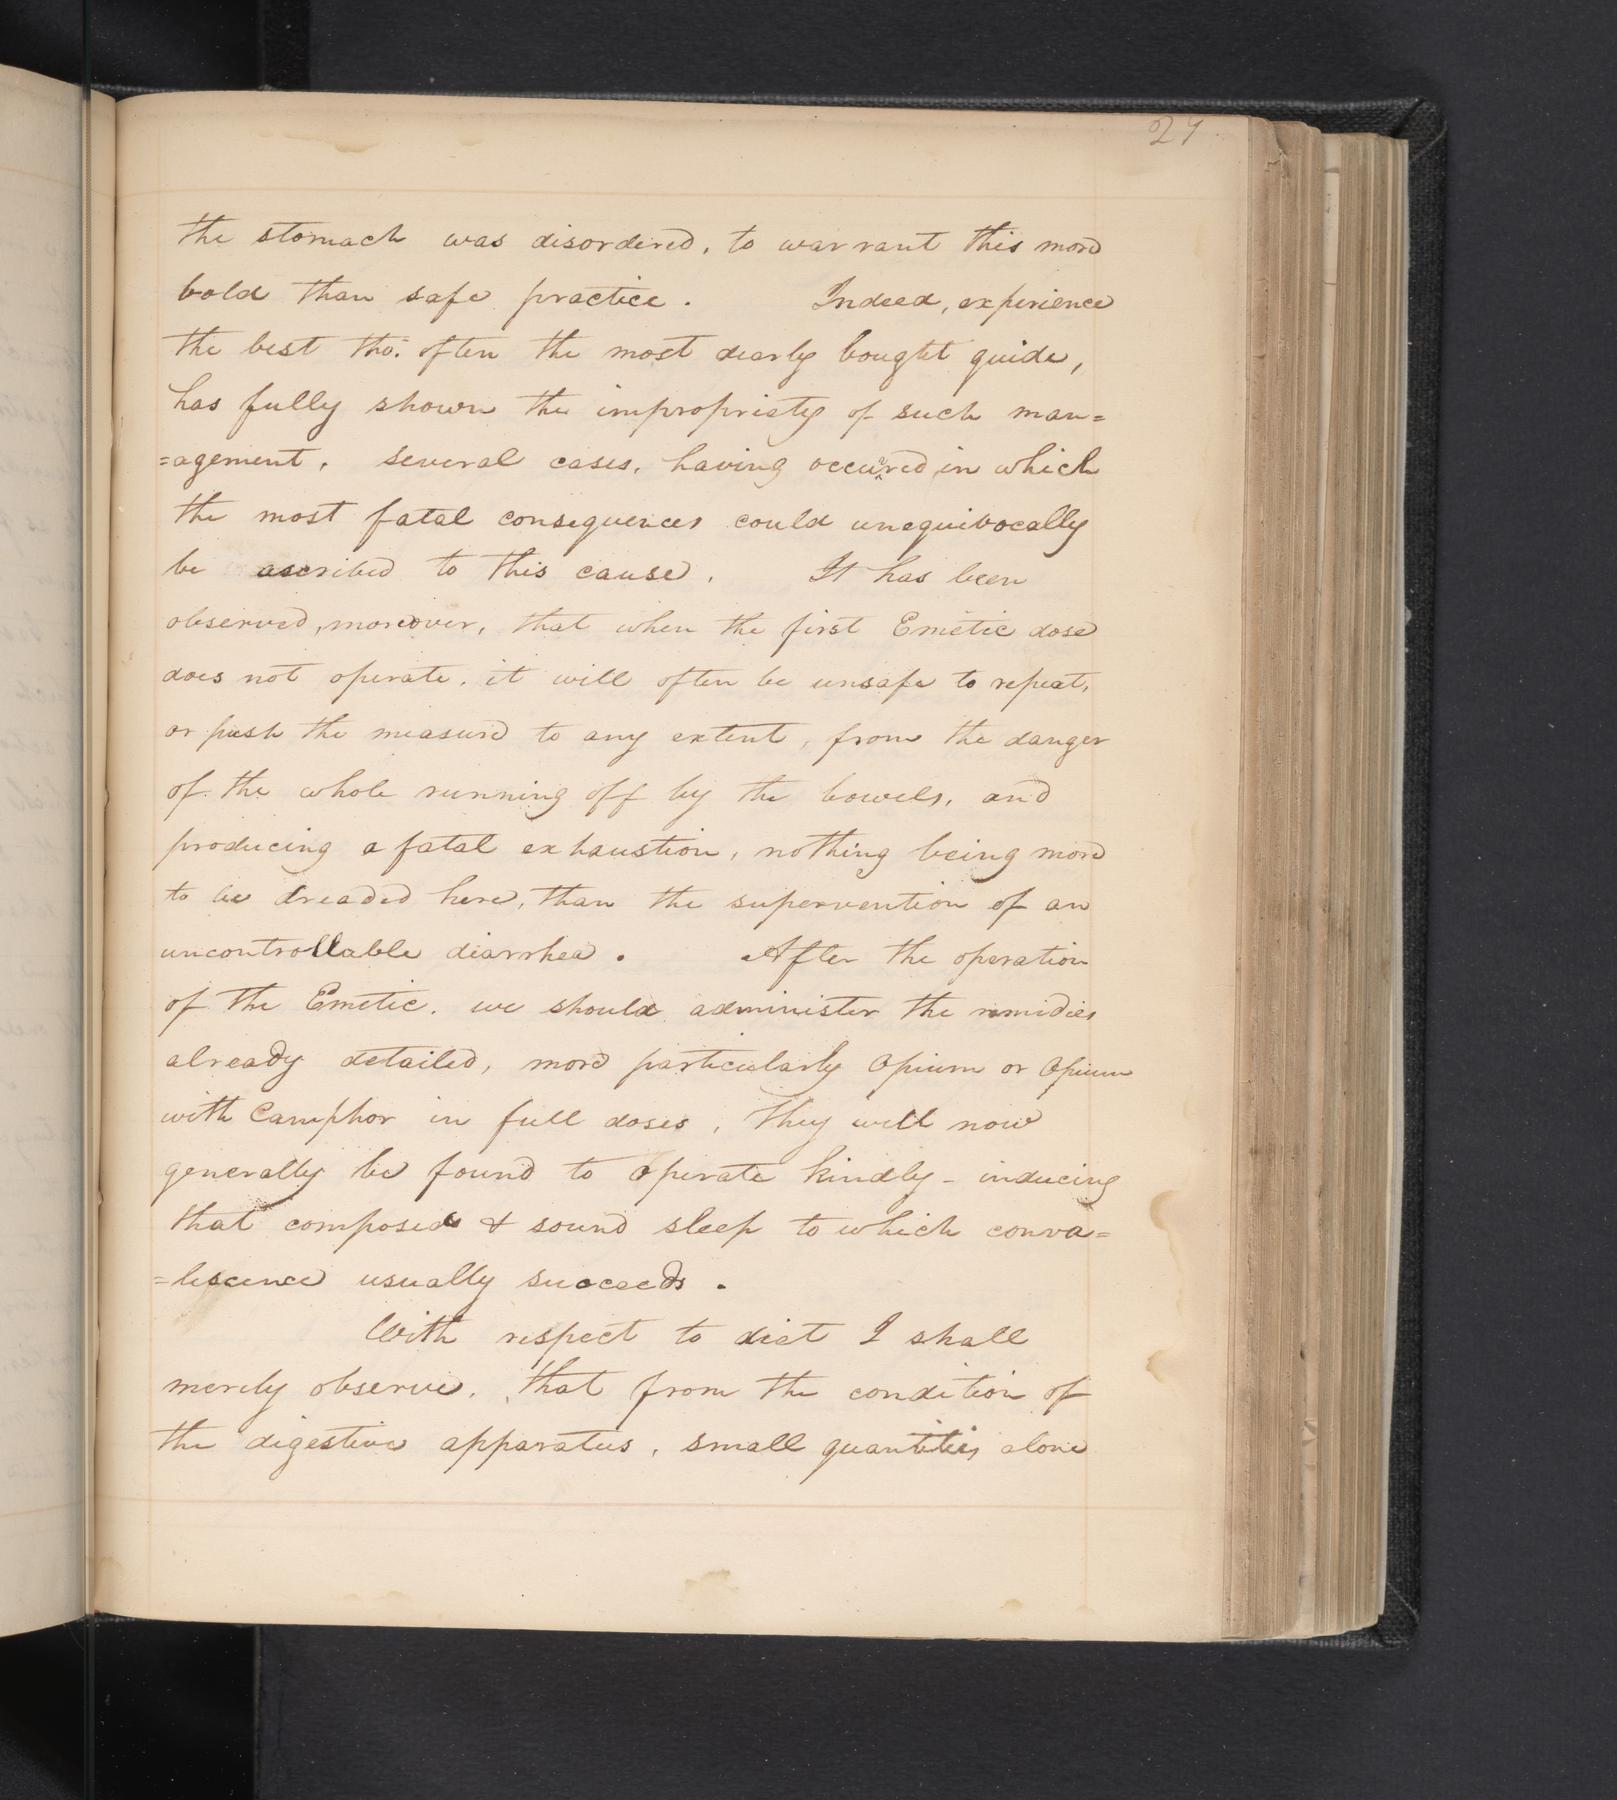 27
the stomach was disordered, to warrant this more
bold than safe practice. Indeed, experience
the best tho: often the most dearly bought guide,
has fully shown the impropriety of such man=
=agement, several cases, having occurred in which
the most fatal consequences could unequivocally
be ascribed to this cause. It has been
observed, moreover, that when the first Emetic dose
does not operate, it will often be unsafe to repeat,
or push the measure to any extent, from the danger
of the whole running off by the bowels, and
producing a fatal exhaustion, nothing being more
to be dreaded here, than the supervention of an
uncontrollable diarrhea. After the operation
of the Emetic, we should administer the remidies
already detailed, more particularly Opium or Opium
with Camphor in full doses, They will now
generally be found to operate kindly - inducing
that composed & sound sleep to which conva=
=lescence usually succeeds.
With respect to diet I shall
merely observe, that from the condition of
the digestive apparatus, small quantities alone